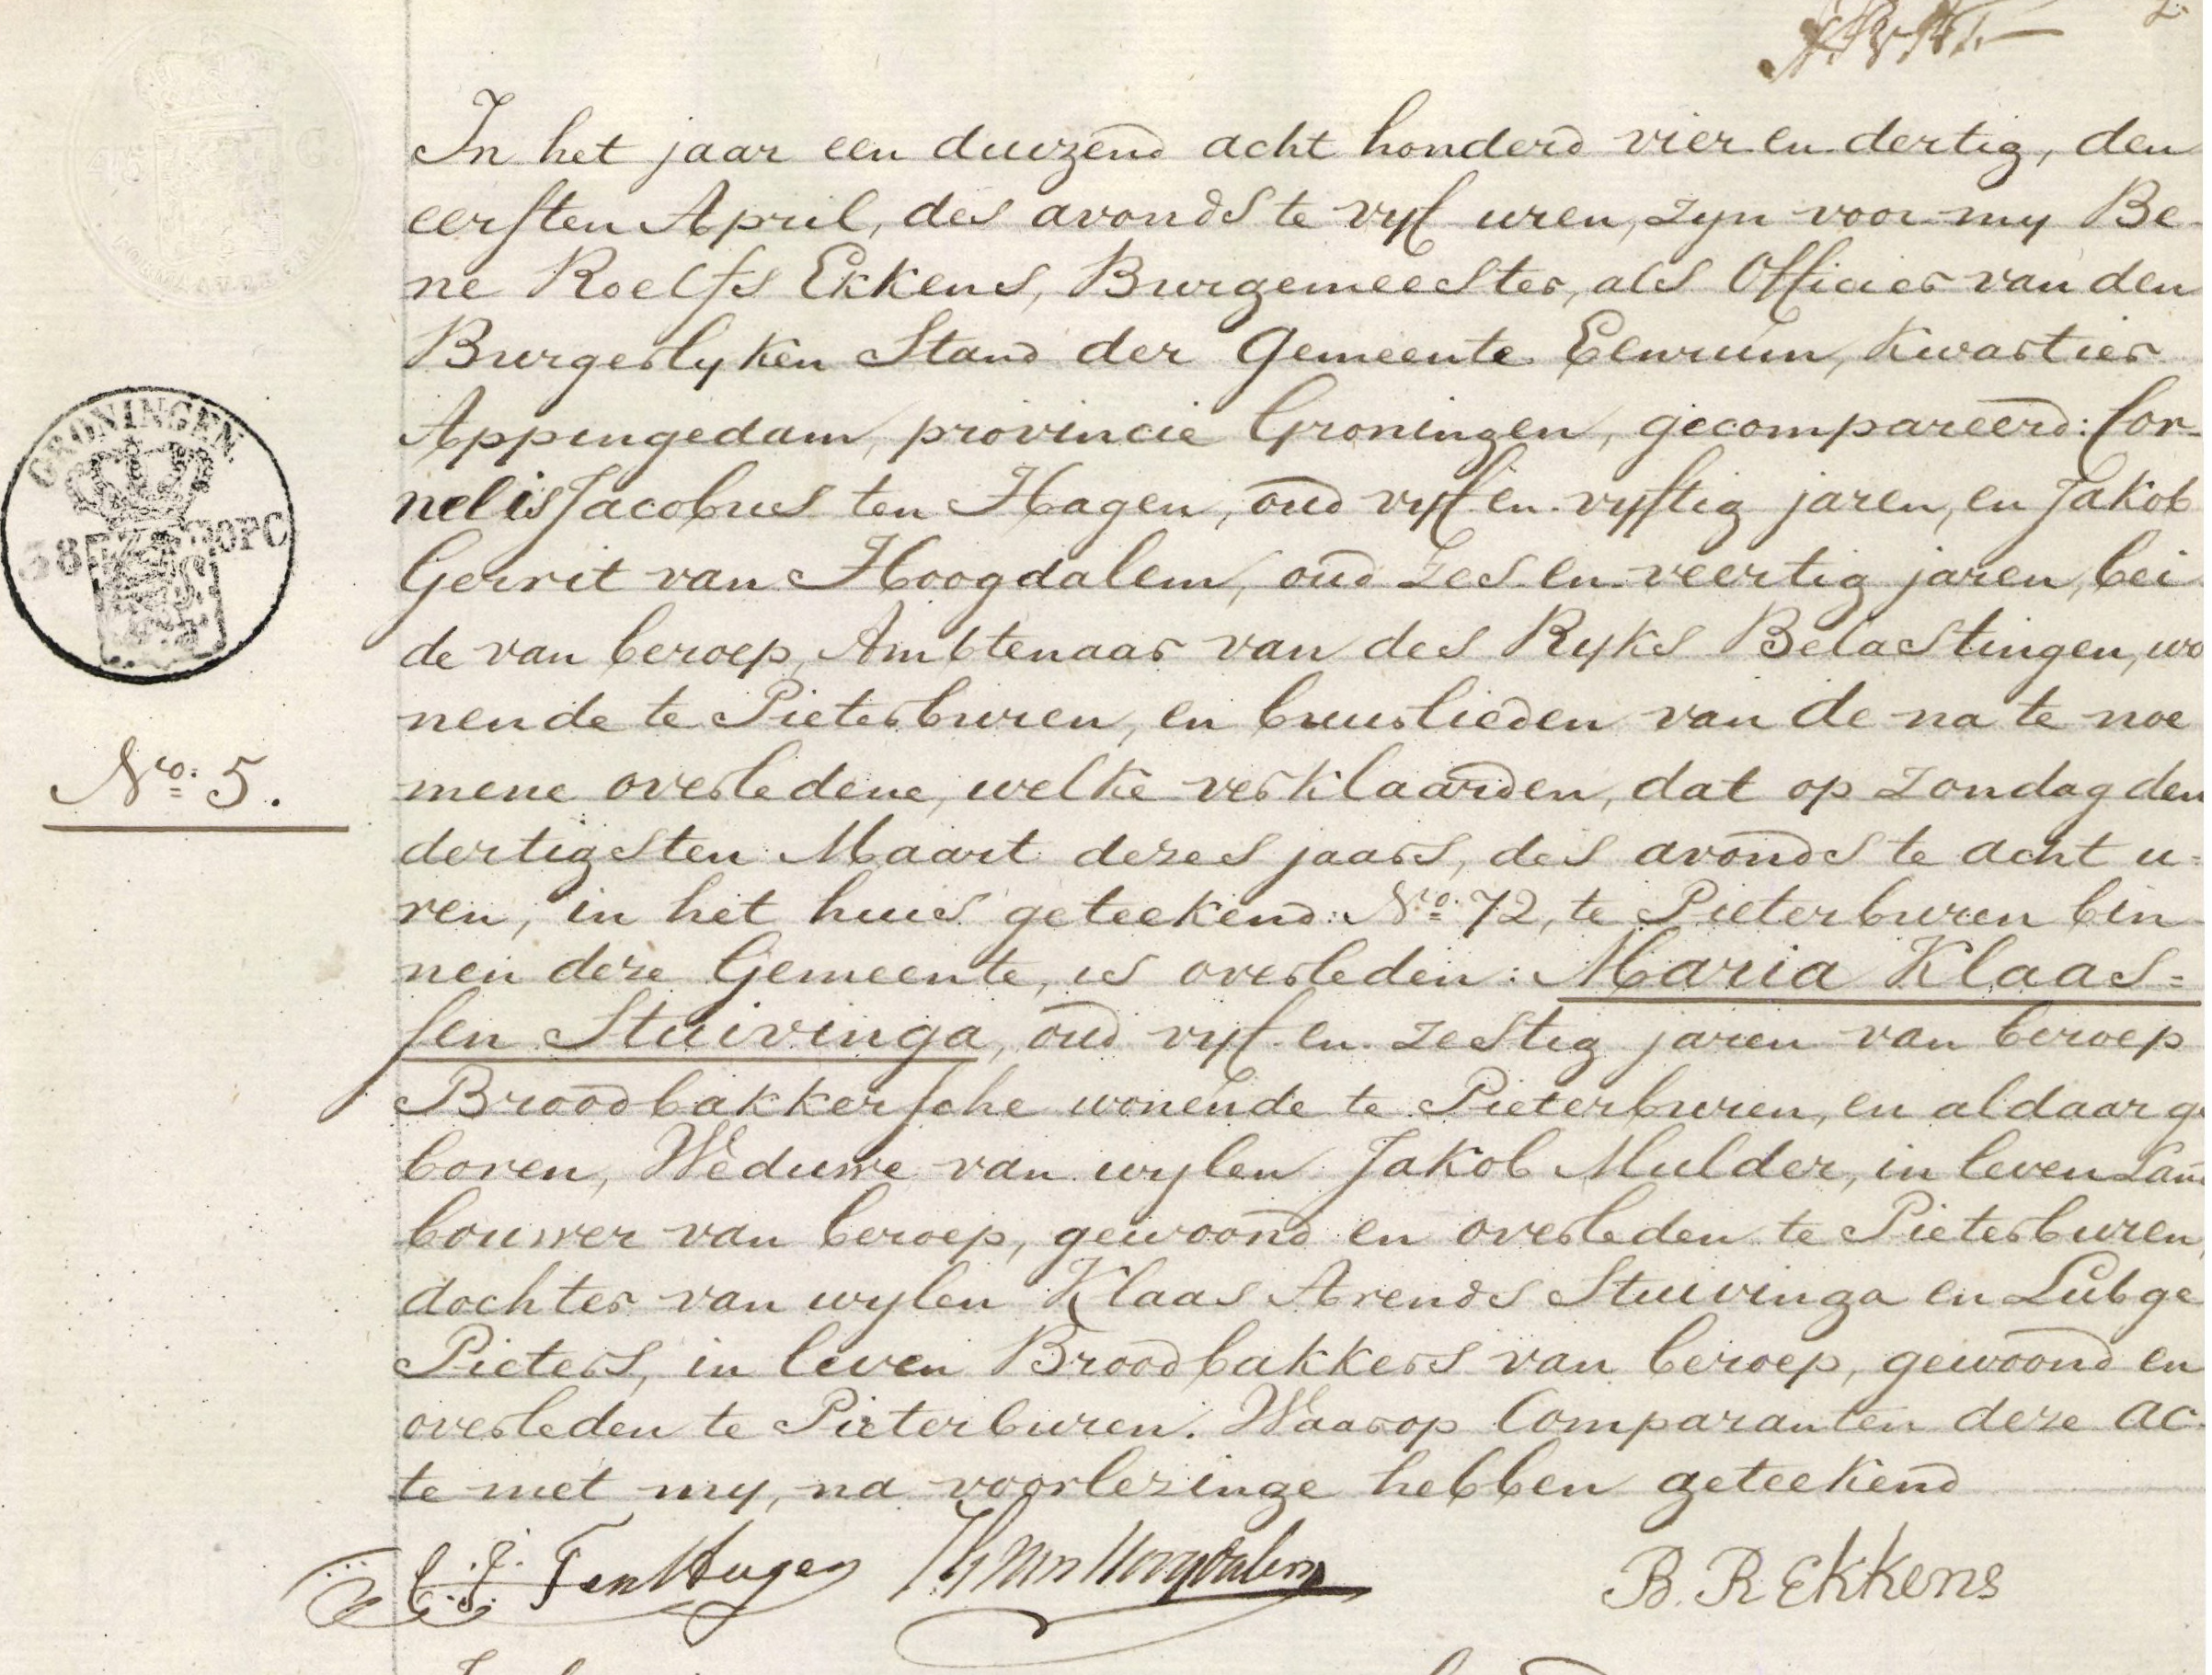 In het jaar een duizend acht honderd vier en dertig, den
eersten April, des avonds te vyf uren, zyn voor my Be-
ne Roelfs Ekkens, Burgemeester, als Officier van den
Burgerlyken Stand der Gemeente Eenrum, Kwartier
Appingedam, provincie Groningen, gecompareerd: Cor-
nelis Jacobus ten Hagen, oud vyf en vyftig jaren, en Jakob
Gerrit van Hoogdalem, oud zes en veertig jaren, bei
de van beroep, Ambtenaar van des Ryks Belastingen, wo
nende te Pieterburen, en buurlieden van de na te noe
mene overledene, welke verklaarden, dat op Zondag den
dertigsten Maart dezes jaars, des avonds te acht u=
ren, in het huis geteekend: Nro. 72, te Pieterburen bin-
nen deze Gemeente, is overleden: Maria Klaas=
sen Stuivinga, oud vyf en zestig jaren van beroep
Broodbakkersche wonende te Pieterburen, en aldaar ge
boren, Weduwe van wylen Jakob Mulder, in leven Land
bouwer van beroep, gewoond en overleden te Pieterburen,
dochter van wylen Klaas Arends Stuivinga en Lubge
Pieters, in leven Broodbakkers van beroep, gewoond en
overleden te Pieterburen. Waarop Comparanten deze ac-
te met my, na voorlezinge hebben geteekend
C. J. Ten Hagen JG van Hoogdalem B. R Ekkens
GRONINGEN
38 30PC
Nro. 5.